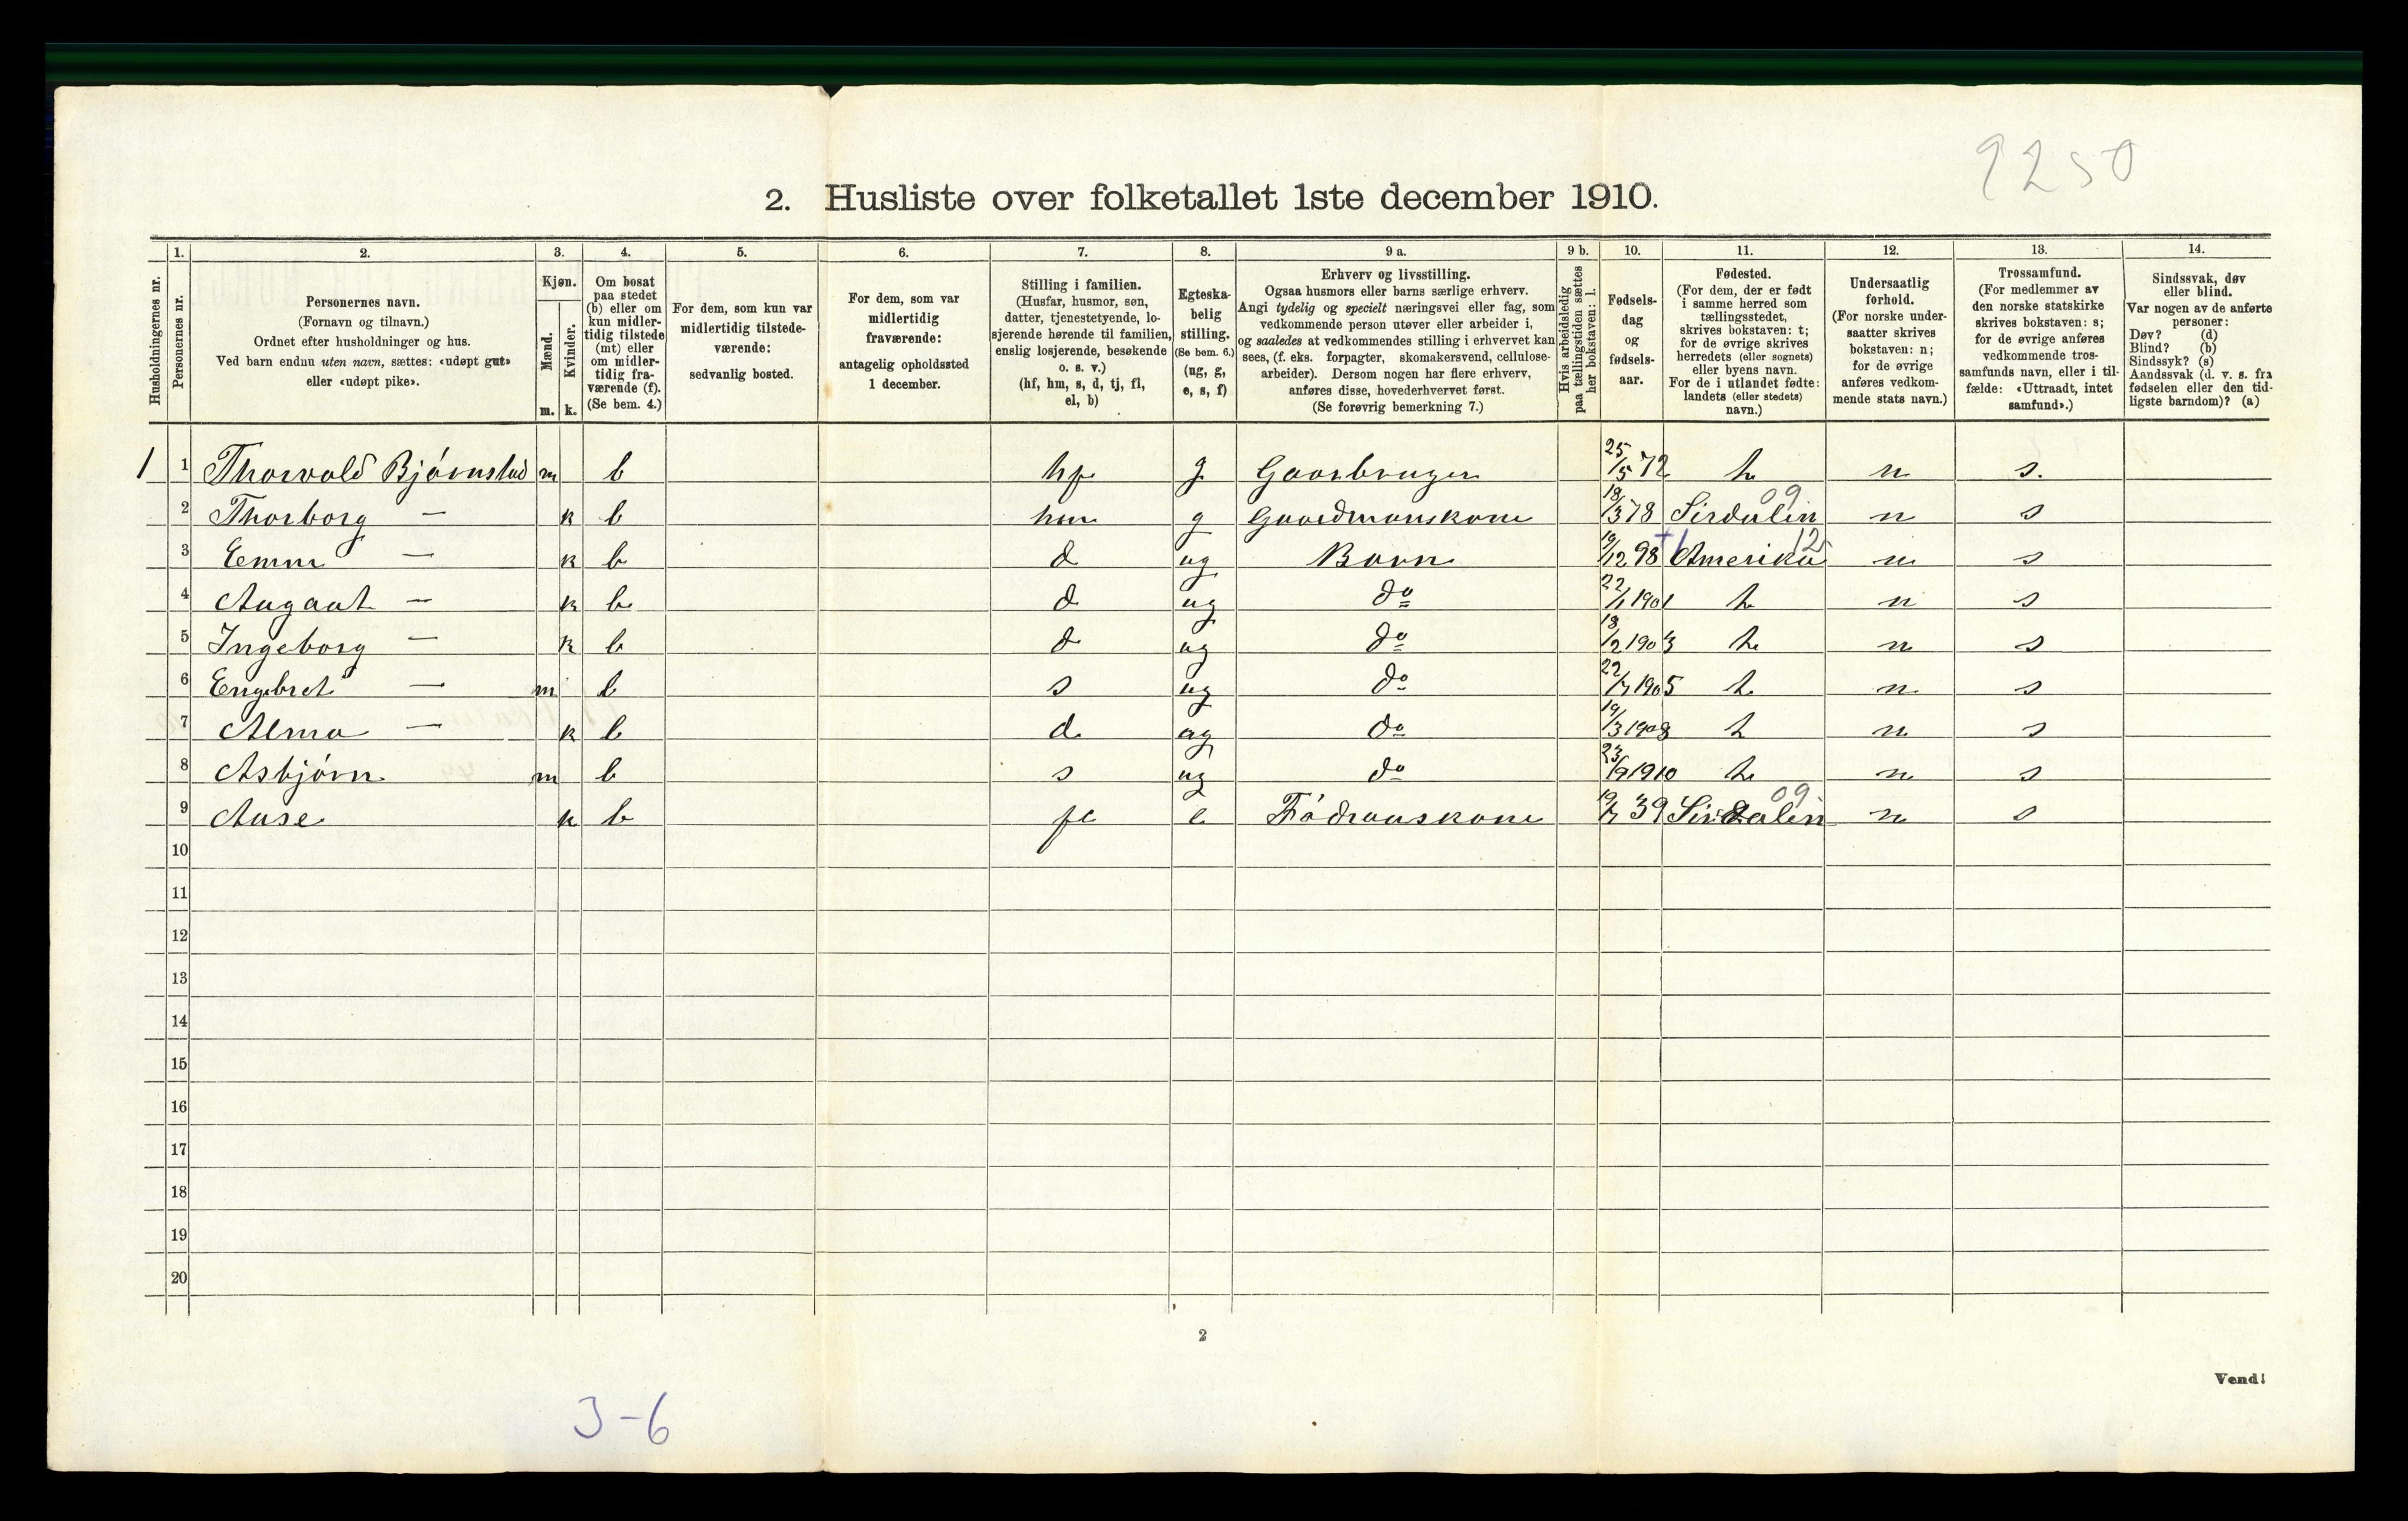 9250
2. Husliste over folketallet 1ste december 1910.
Husholdningernes nr.
1.
Personernes nr.
2.
Personernes navn.
(Fornavn og tilnavn.)
Ordnet efter husholdninger og hus.
Ved barn endnu uten navn, sættes: «udøpt gut»
eller «udøpt pike».
3.
Kjøn.
Mænd.
Kvinder.
m. k.
4.
Om bosat
paa stedet
(b) eller om
kun midler-
tidig tilstede
(mt) eller
om midler-
tidig fra-
værende (f).
(Se bem. 4.)
5.
For dem, som kun var
midlertidig tilstede-
værende:
sedvanlig bosted.
6.
For dem, som var
midlertidig
fraværende:
antagelig opholdssted
1 december.
7.
Stilling i familien.
(Husfar, husmor, søn,
datter, tjenestetyende, lo-
sjerende hørende til familien,
enslig losjerende, besøkende
o. s. v.)
(hf, hm, s, d, tj, fl,
el, b)
8.
Egteska-
belig
stilling.
(Se bem. 6.)
(ug, g,
e, s, f)
9 a.
Erhverv og livsstilling.
Ogsaa husmors eller barns særlige erhverv.
Angi tydelig og specielt næringsvei eller fag, som
vedkommende person utøver eller arbeider i,
og saaledes at vedkommendes stilling i erhvervet kan
sees, (f. eks. forpagter, skomakersvend, cellulose-
arbeider). Dersom nogen har flere erhverv,
anføres disse, hovederhvervet først.
(Se forøvrig bemerkning 7.)
9 b.
Hvis arbeidsledig
paa tællingstiden sættes
her bokstaven: l.
10.
Fødsels-
dag
og
fødsels-
aar.
11.
Fødested.
(For dem, der er født
i samme herred som
tællingsstedet,
skrives bokstaven: t;
for de øvrige skrives
herredets (eller sognets)
eller byens navn.
For de i utlandet fødte:
landets (eller stedets)
navn.)
12.
Undersaatlig
forhold.
(For norske under-
saatter skrives
bokstaven: n;
for de øvrige
anføres vedkom-
mende stats navn.)
13.
Trossamfund.
(For medlemmer av
den norske statskirke
skrives bokstaven: s;
for de øvrige anføres
vedkommende tros-
samfunds navn, eller i til-
fælde: «Uttraadt, intet
samfund».)
14.
Sindssvak, døv
eller blind.
Var nogen av de anførte
personer:
Døv? (d)
Blind? (b)
Sindssyk? (s)
Aandssvak (d. v. s. fra
fødselen eller den tid-
ligste barndom)? (a)
1 1 Thorvald Bjørnstad m b hf g Gaarbruger 25/5 72 t n s.
2 Thorborg — k b hm g Gaardmanskone 18/3 78 Sirdalen 09 n s
3 Emm — k b d ug Barn 19/12 98 +1 Amerika 12 n s
4 Aagaat — k b d ug do 22/1 1901 t n s
5 Ingeborg — k b d ug do 18/2 1903 t n s
6 Engebret — m b s ug do 22/7 1905 t n s
7 Alma — k b d ug do 19/3 1908 t n s
8 Asbjørn m b s ug do 23/9 1910 t n s
9 Aase k b fl e Føderaaskone 19/7 39 Sirdalen 09 n s
10
11
12
13
14
15
16
17
18
19
20
2
Vend!
3-6